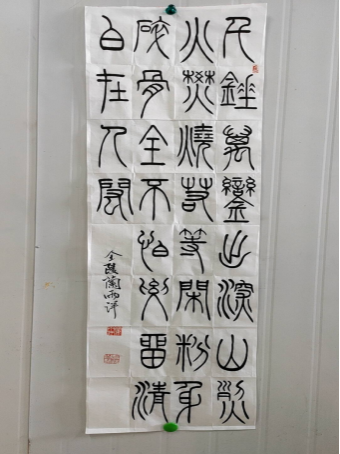 千錘萬鑿出深山烈
火焚燒若等閑粉身
碎骨全不怕要留清
白在人間
蘭雨